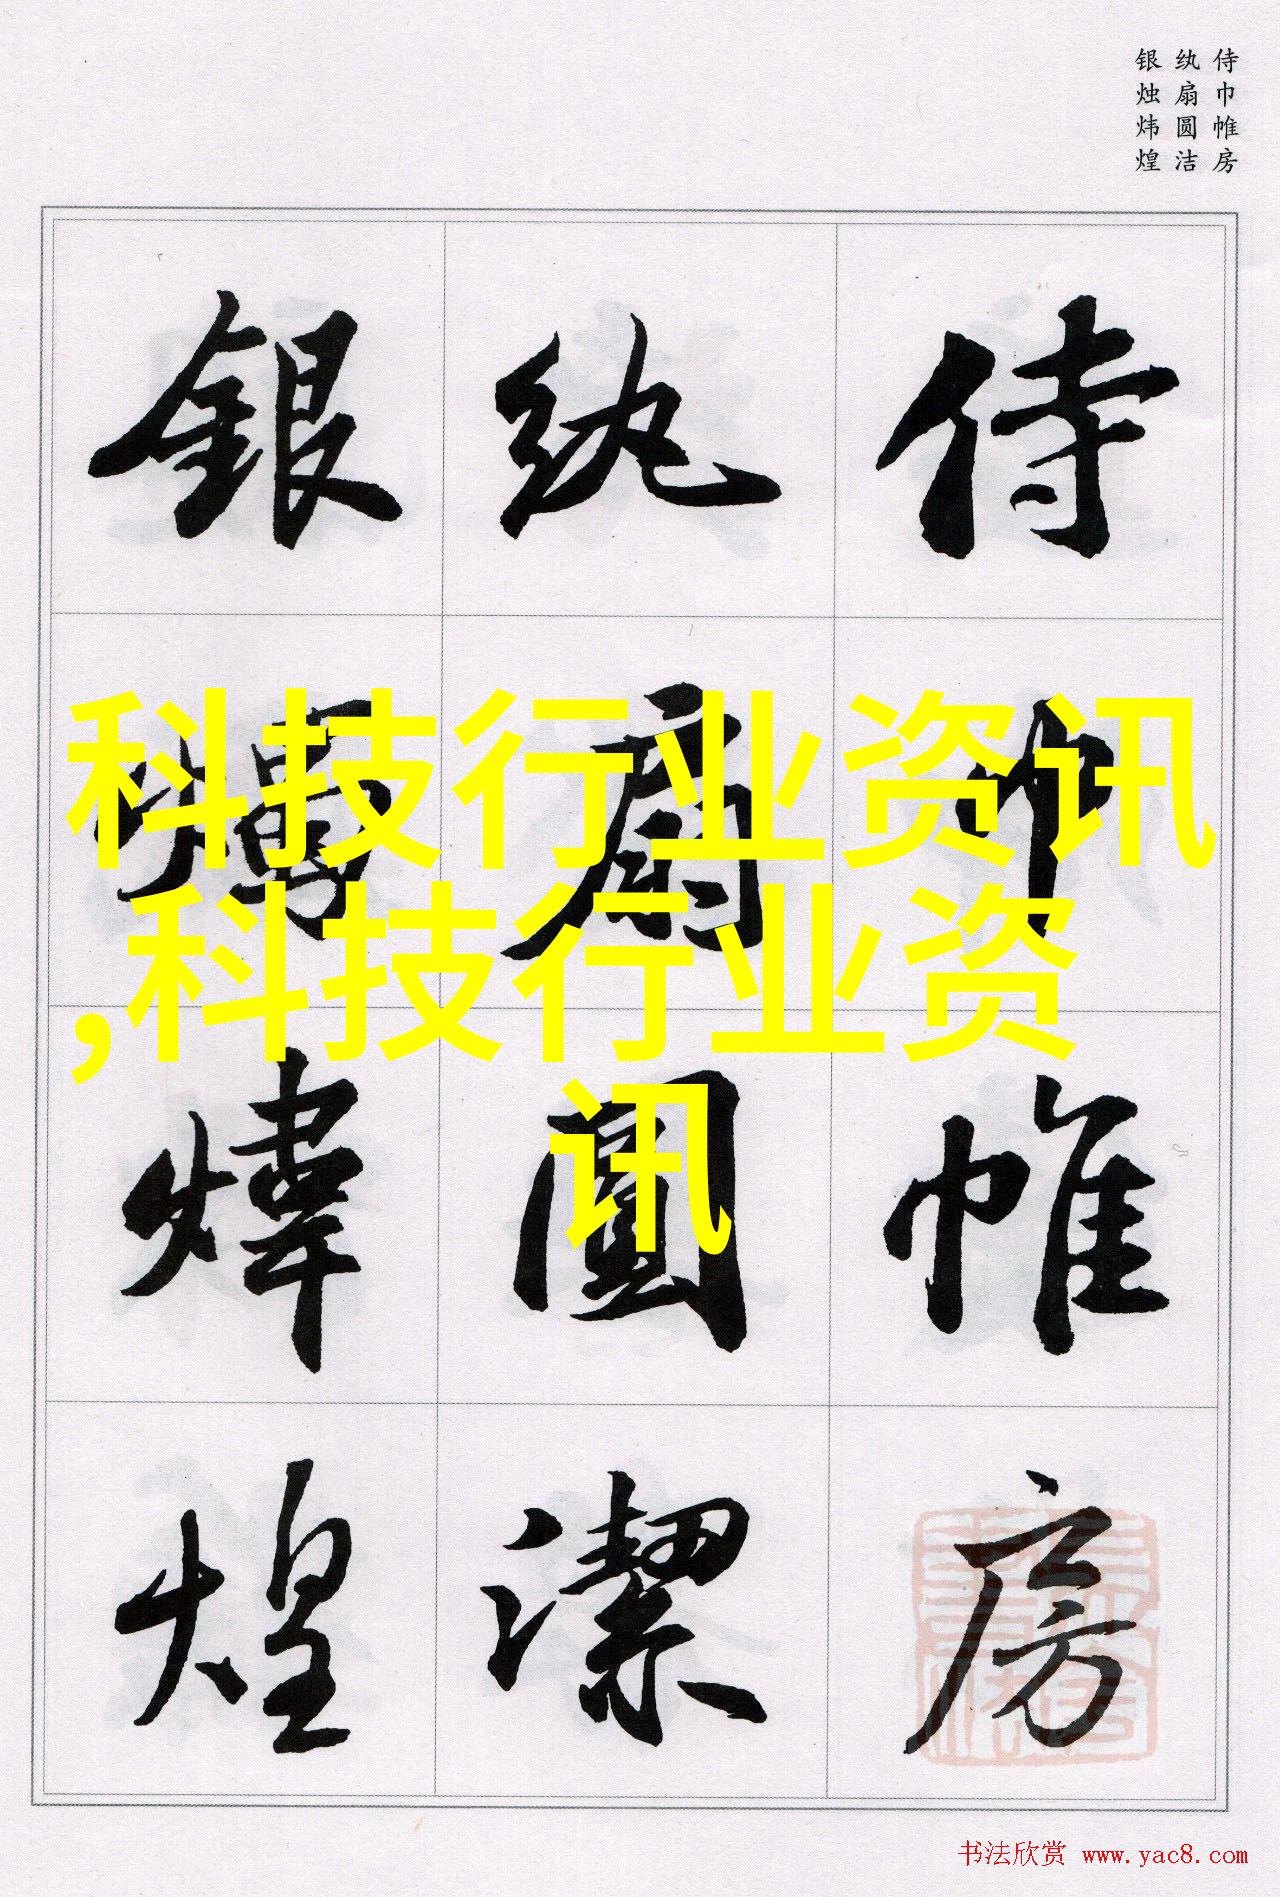 侍巾帷房
纨扇圆洁
银烛炜煌
侍巾帷房
纨扇圓潔
銀燭煒煌
科技行业资讯
,科技行业资
讯
书法欣赏 www.yac8.com